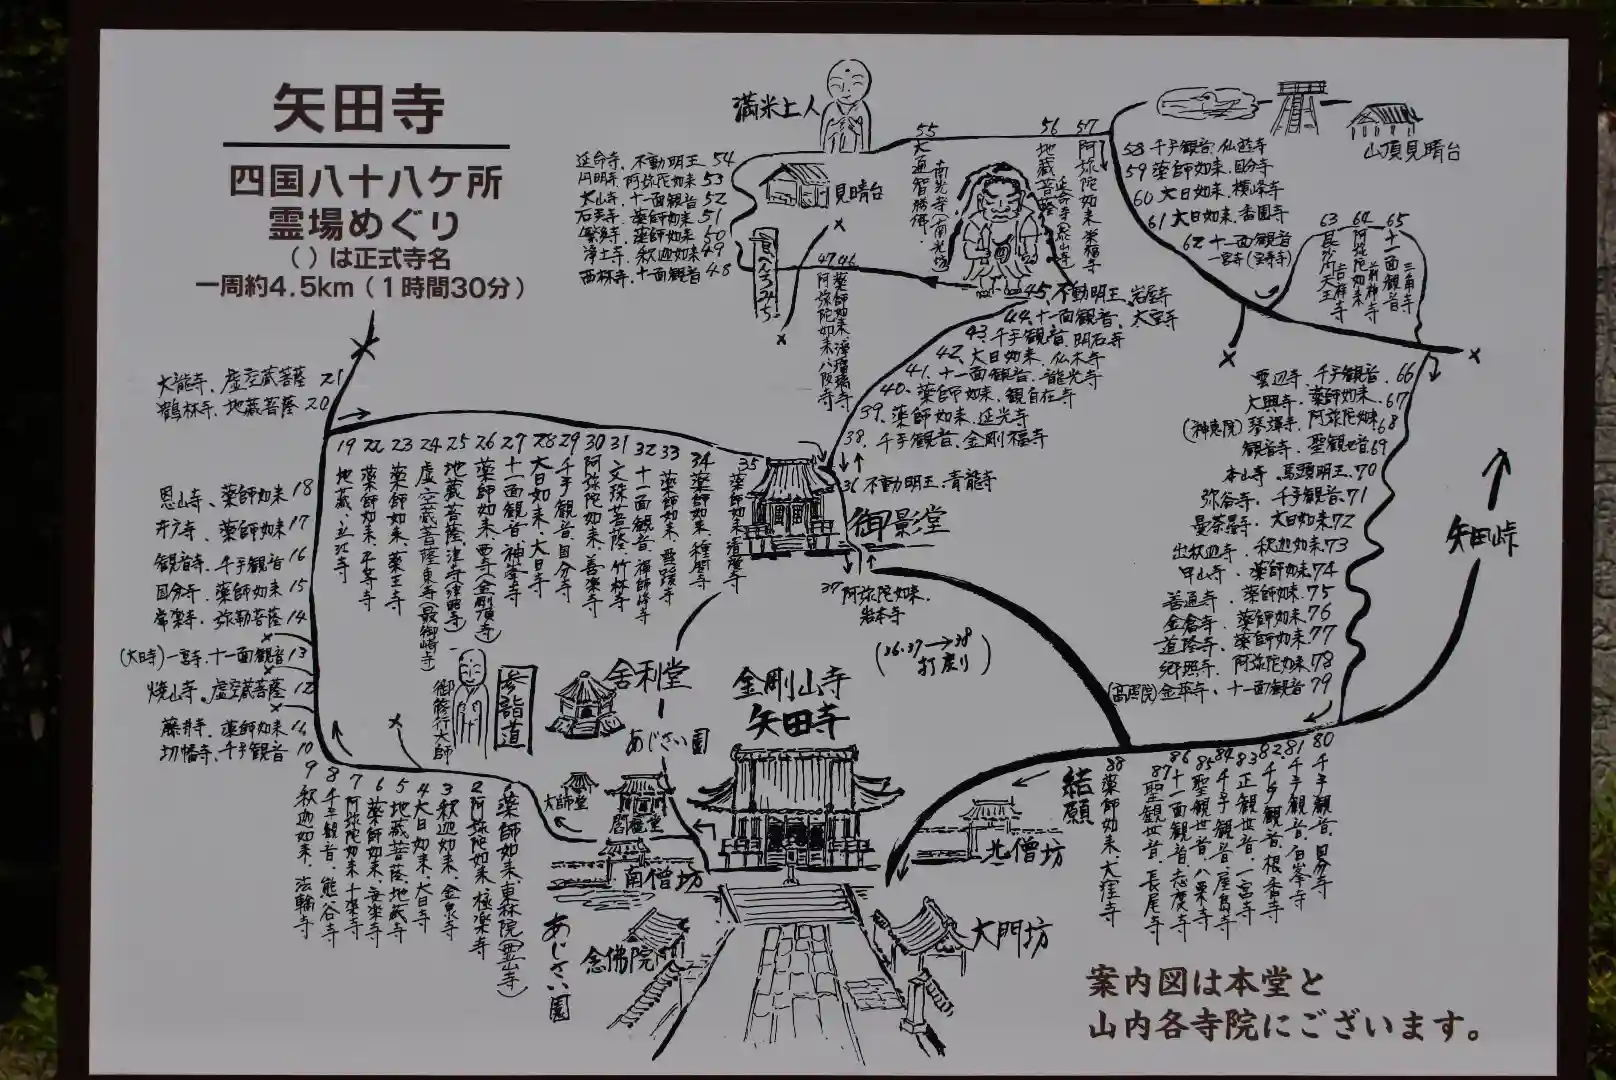 矢田寺
四国八十八ケ所
霊場めぐり
( )は正式寺名
一周約4.5km(1時間30分)
満米上人
見晴台
山頂見晴台
延命寺、不動明王 54
円明寺、阿弥陀如来 53
太山寺、十一面観音 52
石手寺、薬師如来 51
繁多寺、薬師如来 50
浄土寺、釈迦如来 49
西林寺、十一面観音 48
47 阿弥陀如来、八阪寺
46 薬師如来、浄瑠璃寺
55 大通智勝佛、南光寺(南光坊)
56 地蔵菩薩
57 阿弥陀如来 栄福寺
58 千手観音、仙遊寺
59 薬師如来、国分寺
60 大日如来、横峰寺
61 大日如来、香園寺
62 十一面観音
63 毘沙門天王 吉祥寺
64 阿弥陀如来 前神寺
65 十一面観音 三角寺
45、不動明王、岩屋寺
44、十一面観音、大宝寺
43、千手観音、明石寺
42、大日如来、仏木寺
41、十一面観音、龍光寺
40、薬師如来、観自在寺
39、薬師如来、延光寺
38、千手観音、金剛福寺
36 不動明王、青龍寺
御影堂
37 阿弥陀如来、
岩本寺
(36.37→38
打戻り)
雲辺寺、千手観音、66
大興寺、薬師如来、67
(神恵院)琴弾寺、阿弥陀如来68
観音寺、聖観世音69
本山寺、馬頭明王、70
弥谷寺、千手観音、71
曼荼羅寺、大日如来72
出釈迦寺、釈迦如来73
甲山寺、薬師如来74
善通寺、薬師如来75
金倉寺、薬師如来76
道隆寺、薬師如来77
郷照寺、阿弥陀如来78
(高照院)金華寺、十一面観音79
矢田峠
大龍寺、虚空蔵菩薩 21
鶴林寺、地蔵菩薩 20
恩山寺、薬師如来 18
井戸寺、薬師如来 17
観音寺、千手観音 16
国分寺、薬師如来 15
常楽寺、弥勒菩薩 14
(大日寺)一宮寺、十一面観音 13
焼山寺、虚空蔵菩薩 12
藤井寺、薬師如来 11
切幡寺、千手観音 10
19 地蔵、立江寺
22 薬師如来、平等寺
23 薬師如来、薬王寺
24 虚空蔵菩薩、東寺(最御崎寺)
25 地蔵菩薩、津寺(津照寺)
26 薬師如来、西寺(金剛頂寺)
27 十一面観音、神峯寺
28 大日如来、大日寺
29 千手観音、国分寺
30 阿弥陀如来、善楽寺
31 文殊菩薩、竹林寺
32 十一面観音、禅師峰寺
33 薬師如来、雪蹊寺
34 薬師如来、種間寺
35 薬師如来、清瀧寺
御修行大師
参詣道
舎利堂
あじさい園
金剛山寺
矢田寺
大師堂
閻魔堂
南僧坊
北僧坊
念佛院
大門坊
あじさい園
結願
9 釈迦如来、法輪寺
8 千手観音、熊谷寺
7 阿弥陀如来 十楽寺
6 薬師如来、安楽寺
5 地蔵菩薩 地蔵寺
4 大日如来、大日寺
3 釈迦如来、金泉寺
2 阿弥陀如来 極楽寺
薬師如来、東林院(霊山寺)
88 薬師如来、大窪寺
87 聖観世音、長尾寺
86 十一面観音、志度寺
85 聖観世音、八栗寺
84 千手観音、屋島寺
83 正観世音、一宮寺
82 千手観音、根香寺
81 千手観音、白峯寺
80 千手観音、国分寺
案内図は本堂と
山内各寺院にございます。